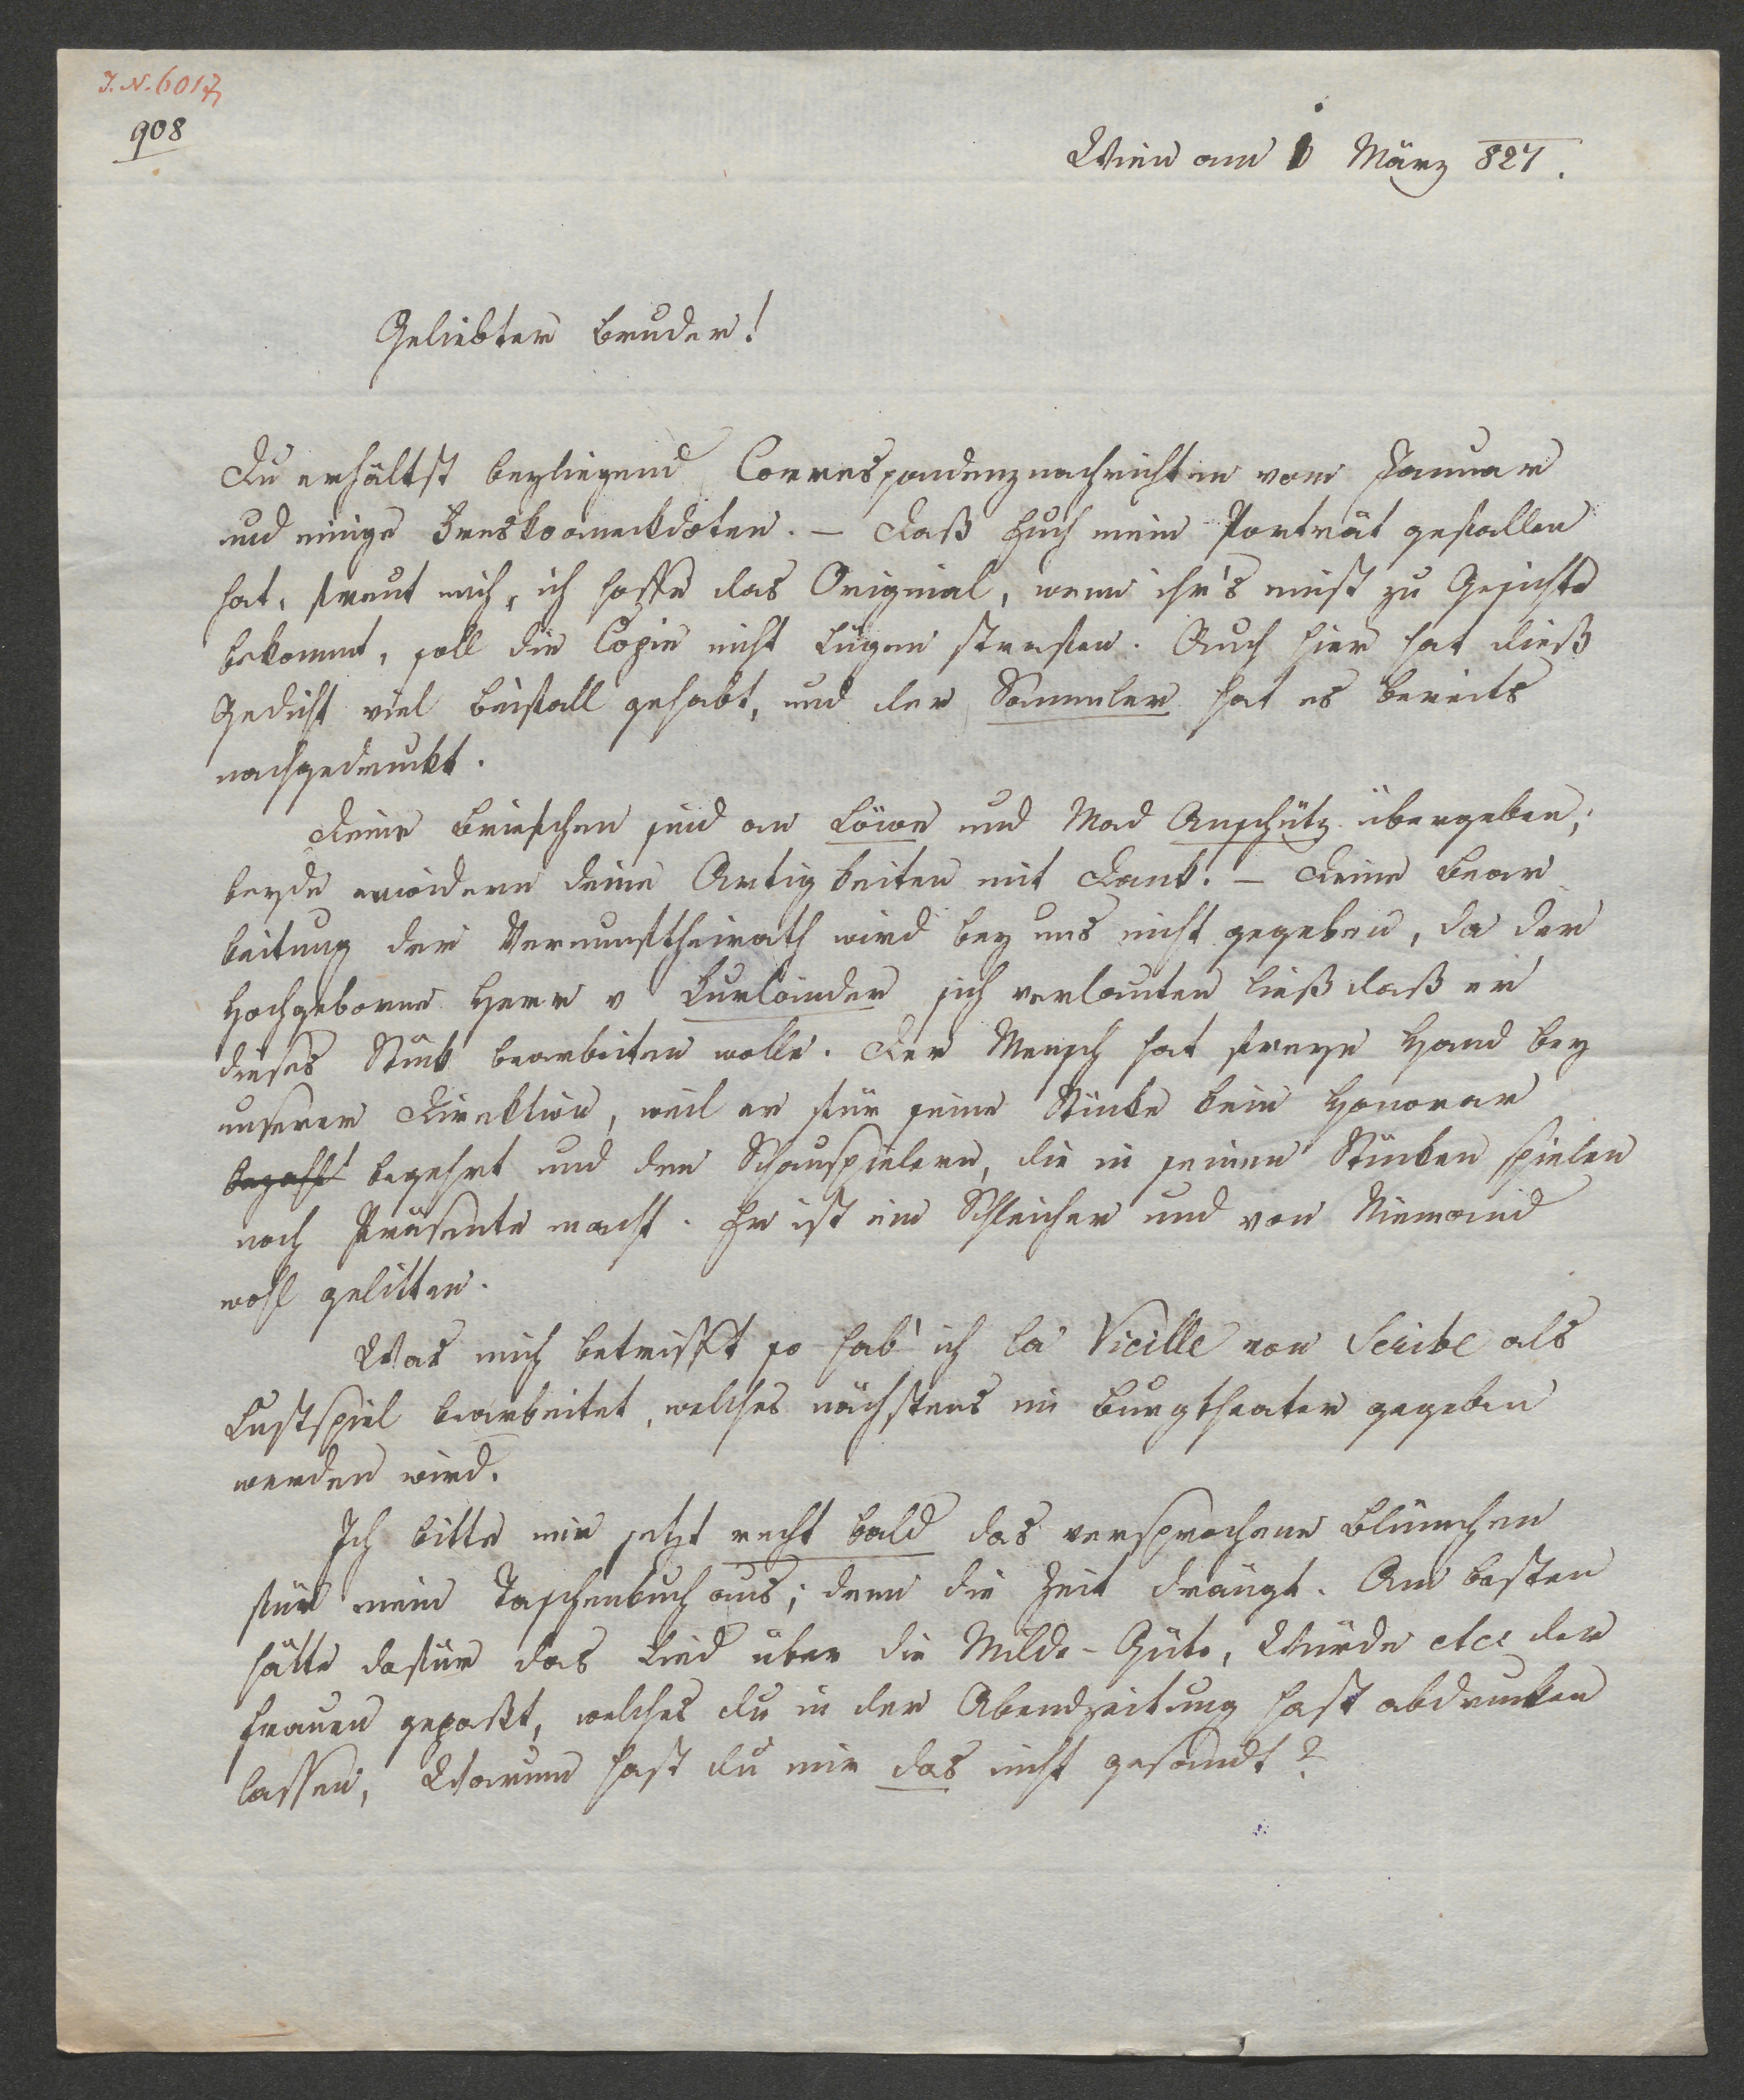 I. N. 6017
908
Wien am 1 März 827.
Geliebter Bruder!
Du erhältst beyliegend Correspondenznachrichten vom Januar
und einige Freskoanekdoten. – Daß Euch mein Porträt gefallen
hat, freut mich, ich hoffe das Original, wenn ihr's einst zu Gesichte
bekommt, soll die Copie nicht Lügen strafen. Auch hier hat dieß
Gedicht viel Beifall gehabt, und der Sammler hat es bereits
nachgedruckt.
Deine Briefchen sind an Löwe und Mad Anschütz übergeben;
beyde erwidern deine Artigkeiten mit Dank. – Deine Bear
beitung der Vernunftheirath wird bey uns nicht gegeben, da der
Hochgeborne Herr v Kurländer sich verlauten ließ daß er
dieses Stück bearbeiten wolle. Der Mensch hat freye Hand bey
unserer Direktion, weil er für seine Stücke kein Honorar
bezahlt begehrt und den Schauspielern, die in seinen Stücken spielen
noch Präsente macht. Er ist ein Schleicher und von Niemand
wohl gelitten.
Was mich betrifft so hab' ich la Vieille von Scribe als
Lustspiel bearbeitet, welches nächstens im Burgtheater gegeben
werden wird.
Ich bitte mir jetzt recht bald das versprochene Blümchen
für mein Taschenbuch aus; denn die Zeit drängt. Am besten
hätte dafür das Lied über die Milde-Güte, Würde etc der
Frauen gepaßt, welches du in der Abendzeitung hast abdrucken
lassen, Warum hast du mir das nicht gesandt?